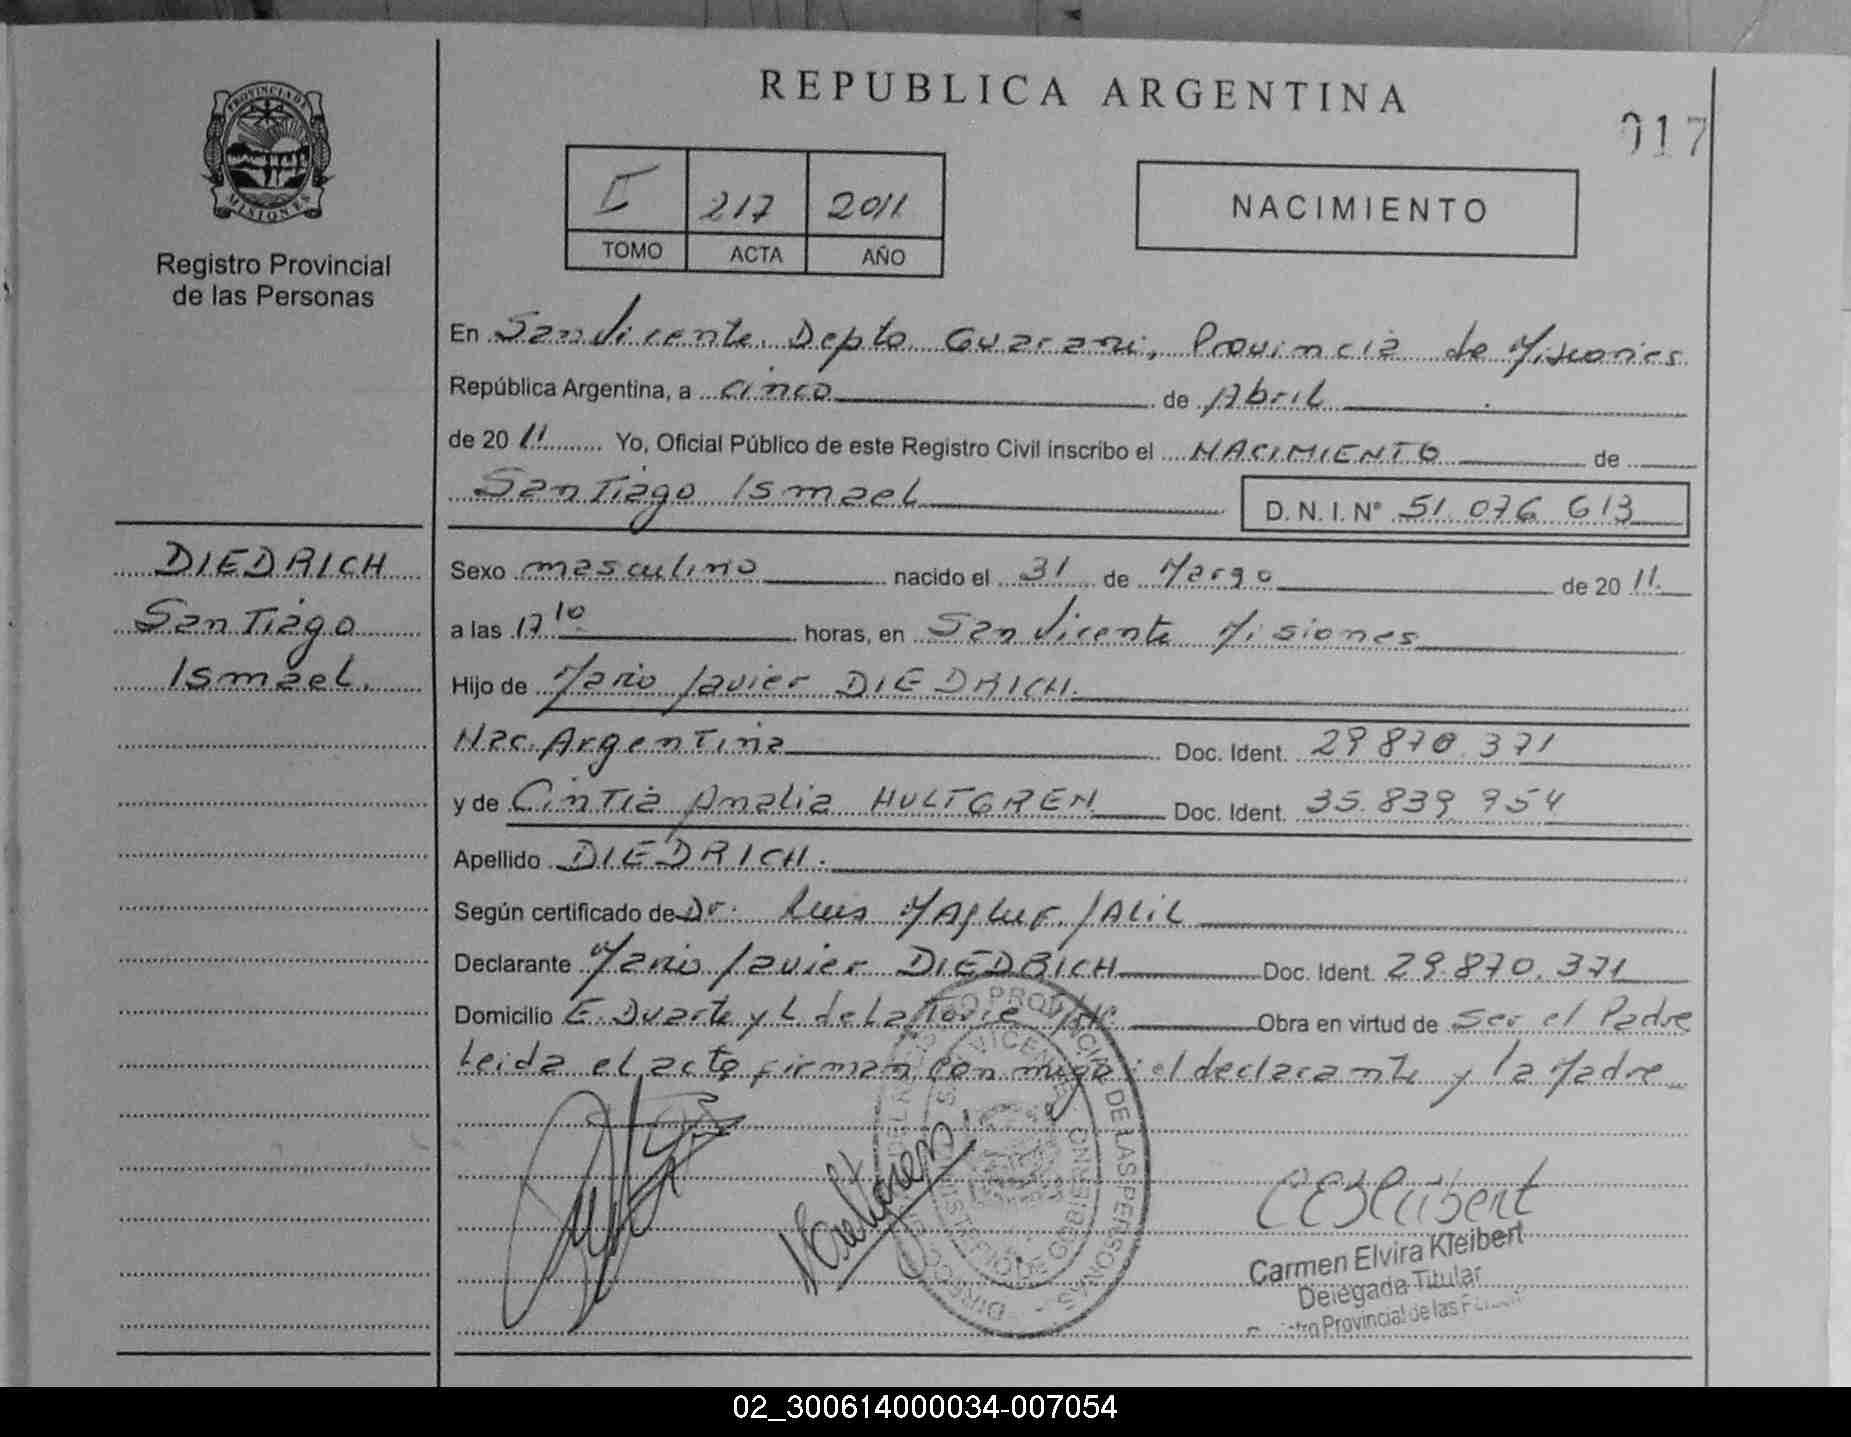 REPUBLICA ARGENTINA
017
PROVINCIA DE
MISIONES
Registro Provincial
de las Personas
II 217 2011
TOMO ACTA AÑO
NACIMIENTO
En San Vicente. Depto Guarani, Provincia de Misiones
República Argentina, a cinco de Abril
de 20 11 Yo, Oficial Público de este Registro Civil inscribo el NACIMIENTO de
Santiago Ismael D. N. I. N° 51.076.613
DIEDRICH
Santiago
Ismael.
Sexo masculino nacido el 31 de Marzo de 20 11.
a las 17 10 horas, en San Vicente Misiones
Hijo de Mario Javier DIEDRICH.
Nac. Argentina Doc. Ident. 29.870.371
y de Cintia Analia HULTGREN Doc. Ident. 35.839.954
Apellido DIEDRICH.
Según certificado de Dr. Luis
Declarante Mario Javier DIEDRICH Doc. Ident. 29.870.371
Domicilio E. Duarte y L de La Torre Obra en virtud de ser el Padre
Leida el acta firman con migo el declarante y la Madre
DIRECCION PROVINCIAL DE LAS PERSONAS
SAN VICENTE
MINISTERIO DE GOBIERNO
Hultgren
CEKleibert
Carmen Elvira Kleibert
Delegada Titular
Provincial de las
02_300614000034-007054